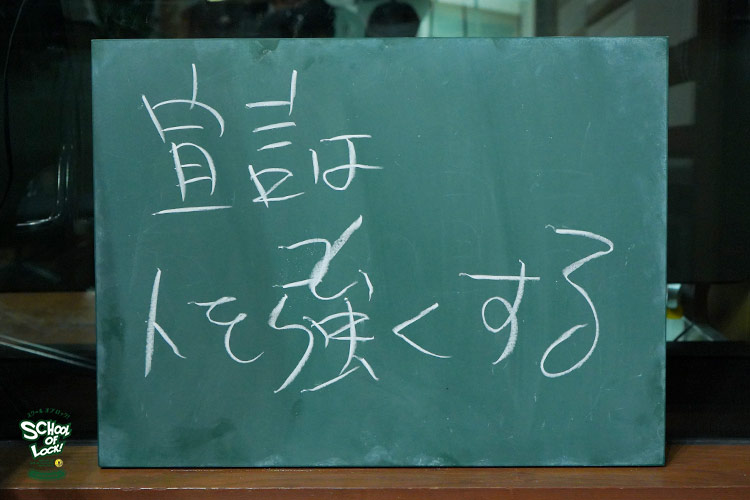 宣言は
人を強くする
SCHOOL
OF
LOCK!